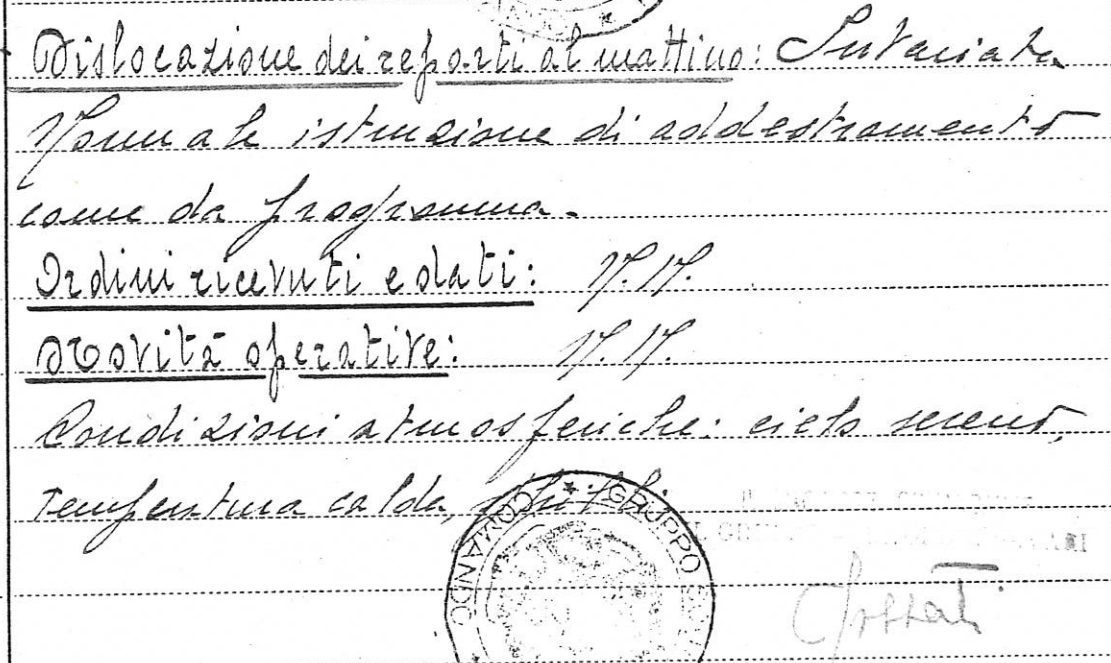 Dislocazione dei reparti al mattino: Invariata
Normale istruzione di addestramento
come da programma.
Ordini ricevuti e dati: N.N.
Novità operative: N.N.
Condizioni atmosferiche: cielo sereno,
temperatura calda,
COMANDO * GRUPPO